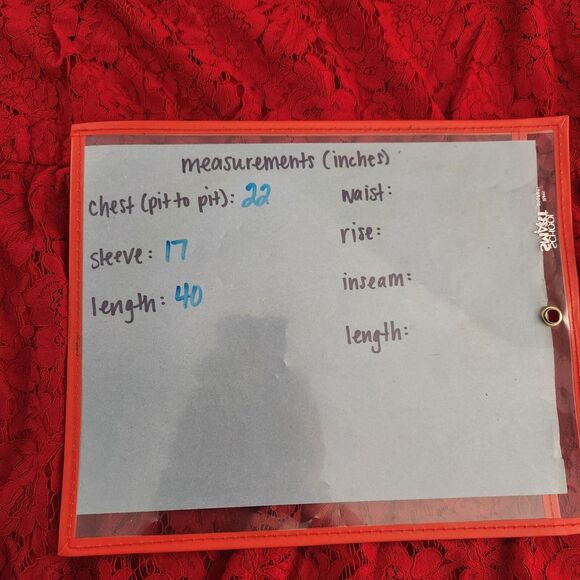 measurements (inches)
chest (pit to pit): 22
sleeve: 17
length: 40
waist:
rise:
inseam:
length: